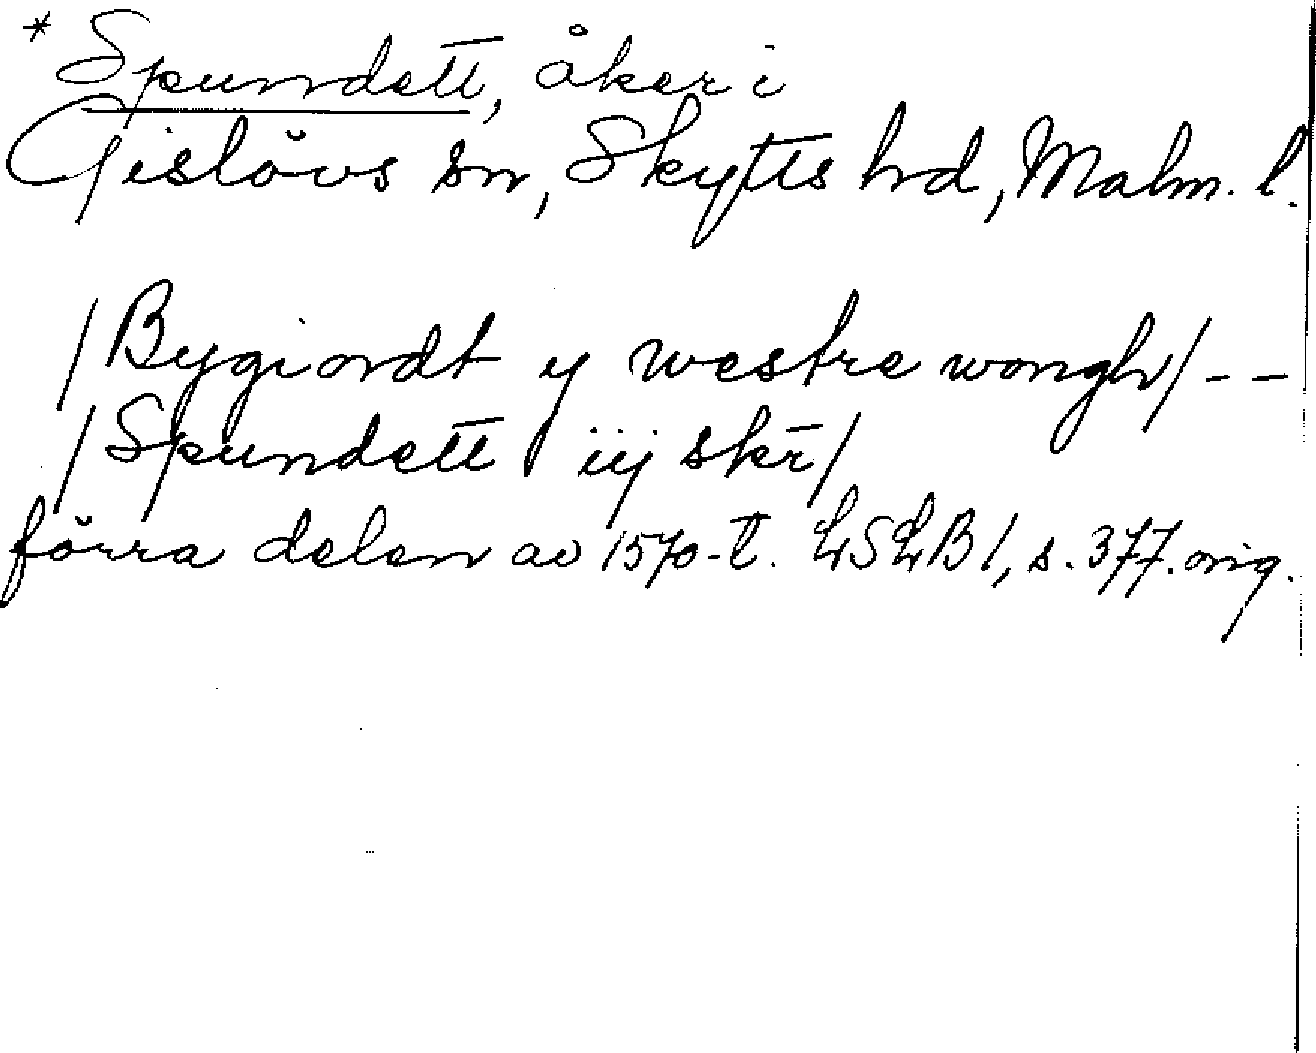 * Spundett, åker i
Gislövs sn, Skytts hd, Malm. l.
/Bygiordt y westre wongh/ - -
/Spundett iij skr̄/
förra delen av 1570-t. LSLB 1, s. 377. orig.